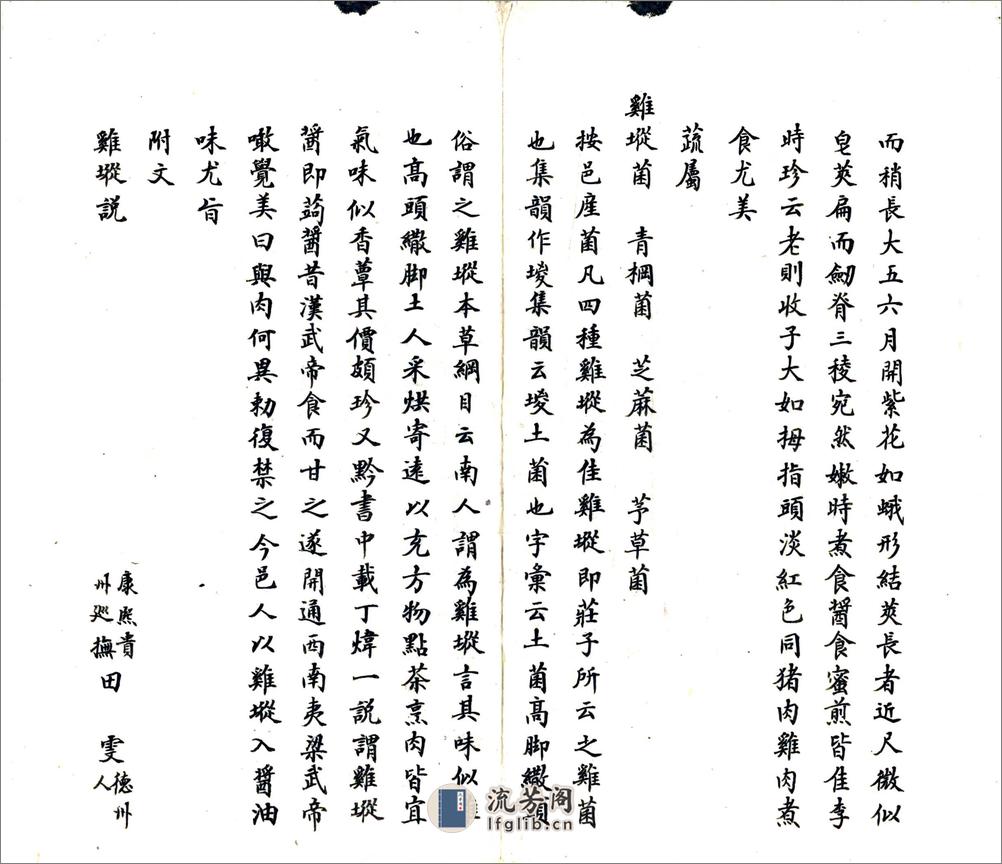 而稍長大五六月開紫花如蛾形結莢長者近尺微似
皂莢扁而劒脊三稜宛然嫩時煮食醬食蜜煎皆佳李
時珍云老則收子大如拇指頭淡紅色同猪肉雞肉煮
食尤美
蔬屬
雞㙡菌 青棡菌 芝蔴菌 芧草菌
按邑産菌凡四種雞㙡為佳雞㙡即莊子所云之雞菌
也集韻作堫集韻云堫土菌也字彙云土菌高脚繖頭
俗謂之雞㙡本草綱目云南人謂為雞㙡言其味似
也高頭繖脚土人采烘寄遠以充方物點茶烹肉皆宜
氣味似香蕈其價頗珍又黔書中載丁煒一説謂雞㙡
醬即蒟醬昔漢武帝食而甘之遂開通西南夷梁武帝
噉覺美曰與肉何異勅復禁之今邑人以雞㙡入醬油
味尤旨
附文
雞㙡説 康熙貴州廵撫田 雯德州人
流芳阁
lfglib.cn